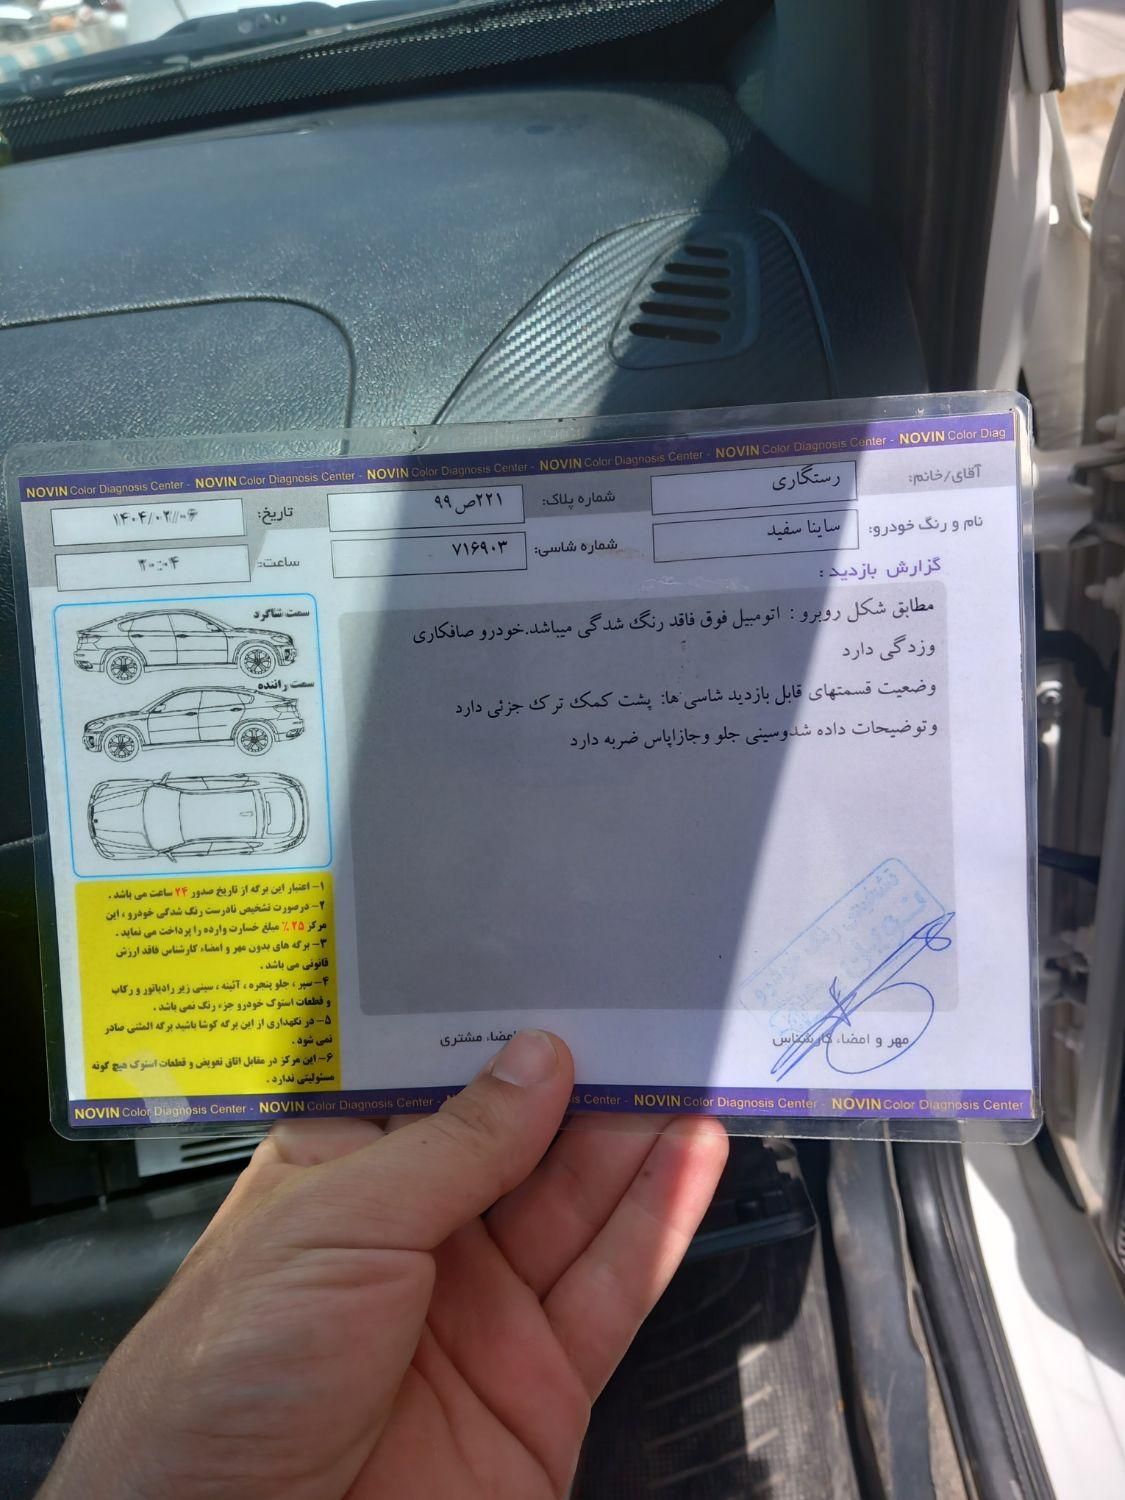 NOVIN Color Diagnosis Center - NOVIN Color Diagnosis Center - NOVIN Color Diagnosis Center - NOVIN Color Diagnosis Center - NOVIN Color Diagnosis Center - NOVIN Color Diag
آقای/خانم: رستگاری شماره پلاک: ۲۲۱ص۹۹ تاریخ: ۱۴۰۴/۰۲//۰۶
نام و رنگ خودرو: ساینا سفید شماره شاسی: ۷۱۶۹۰۳ ساعت:
گزارش بازدید :
مطابق شکل روبرو : اتومبیل فوق فاقد رنگ شدگی میباشد.خودرو صافکاری
وزدگی دارد
وضعیت قسمتهای قابل بازدید شاسی ها: پشت کمک ترک جزئی دارد
وتوضیحات داده شدوسینی جلو وجازاپاس ضربه دارد
سمت شاگرد
سمت راننده
۱- اعتبار این برگه از تاریخ صدور ۲۴ ساعت می باشد .
۲- درصورت تشخیص نادرست رنگ شدگی خودرو ، این
مرکز ۲۵٪ مبلغ خسارت وارده را پرداخت می نماید .
۳- برگه های بدون مهر و امضاء کارشناس فاقد ارزش
قانونی می باشد .
۴- سپر ، جلو پنجره ، آئینه ، سینی زیر رادیاتور و رکاب
و قطعات استوک خودرو جزء رنگ نمی باشد .
۵- در نگهداری از این برگه کوشا باشید برگه المثنی صادر
نمی شود .
۶- این مرکز در مقابل اتاق تعویض و قطعات استوک هیچ گونه
مسئولیتی ندارد .
تشخیص رنگ خودرو
مهر و امضاء کارشناس امضاء مشتری
NOVIN Color Diagnosis Center - NOVIN Color Diagnosis Center - Diagnosis Center - NOVIN Color Diagnosis Center - NOVIN Color Diagnosis Center